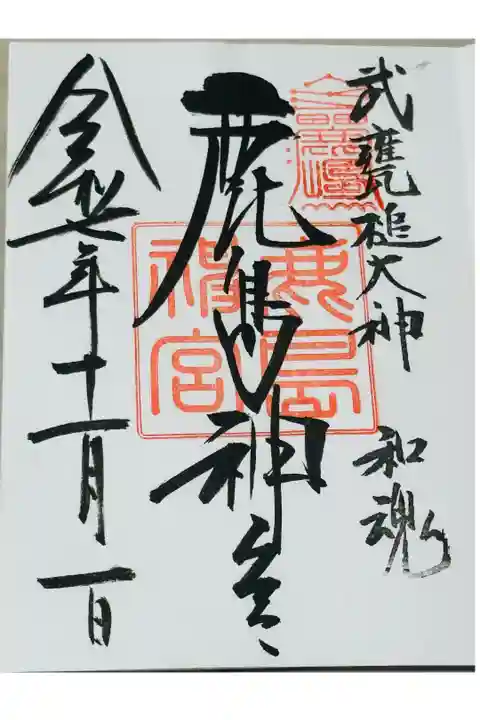 武甕槌大神 和魂
鹿島神宮
鹿島神宮
令和七年十一月一日